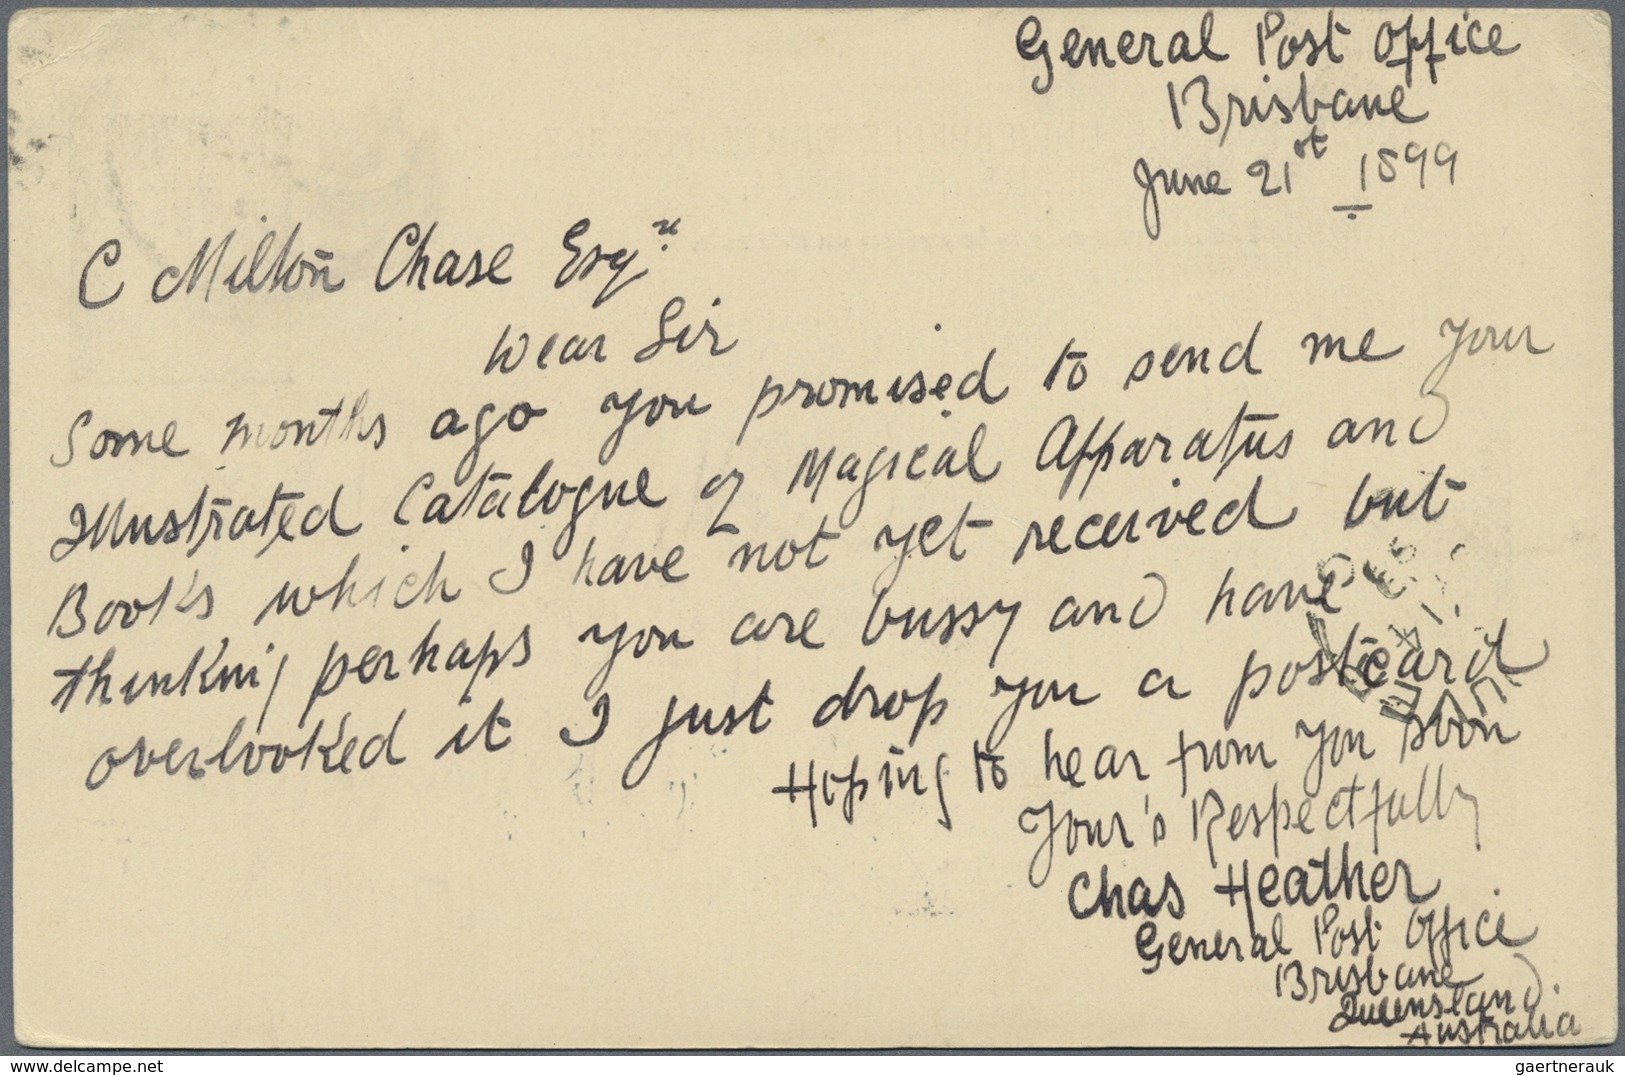 General Post Office
Brisbane
June 21st 1899
C Milton Chase Esqre
Dear Sir
Some months ago you promised to send me your
Illustrated Catalogue of Magical Apparatus and
Books which I have not yet received but
thinking perhaps you are bussy and have
overlooked it I just drop you a postcard
Hoping to hear from you soon
Your's Respectfully
Chas Heather
General Post Office
Brisbane
Queensland.
Australia
www.delcampe.net
gaertnerauk